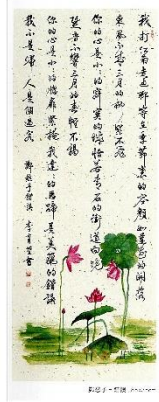 我打江南走過那等在季節裏的容顏如蓮花的開落
東風不來三月的柳絮不飛
你的心是小小的寂寞的城恰若青石的街道向晚
跫音不響三月的春帷不揭
你的心是小小的窗扉緊掩我達達的馬蹄是美麗的錯誤
我不是歸人是個過客
鄭愁予錯誤